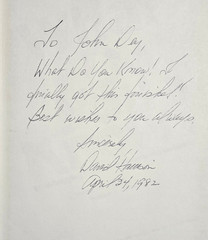 To John Day,
What Do You Know! I
finally got this finished!
Best wishes to you always,
Sincerely,
April 24, 1982